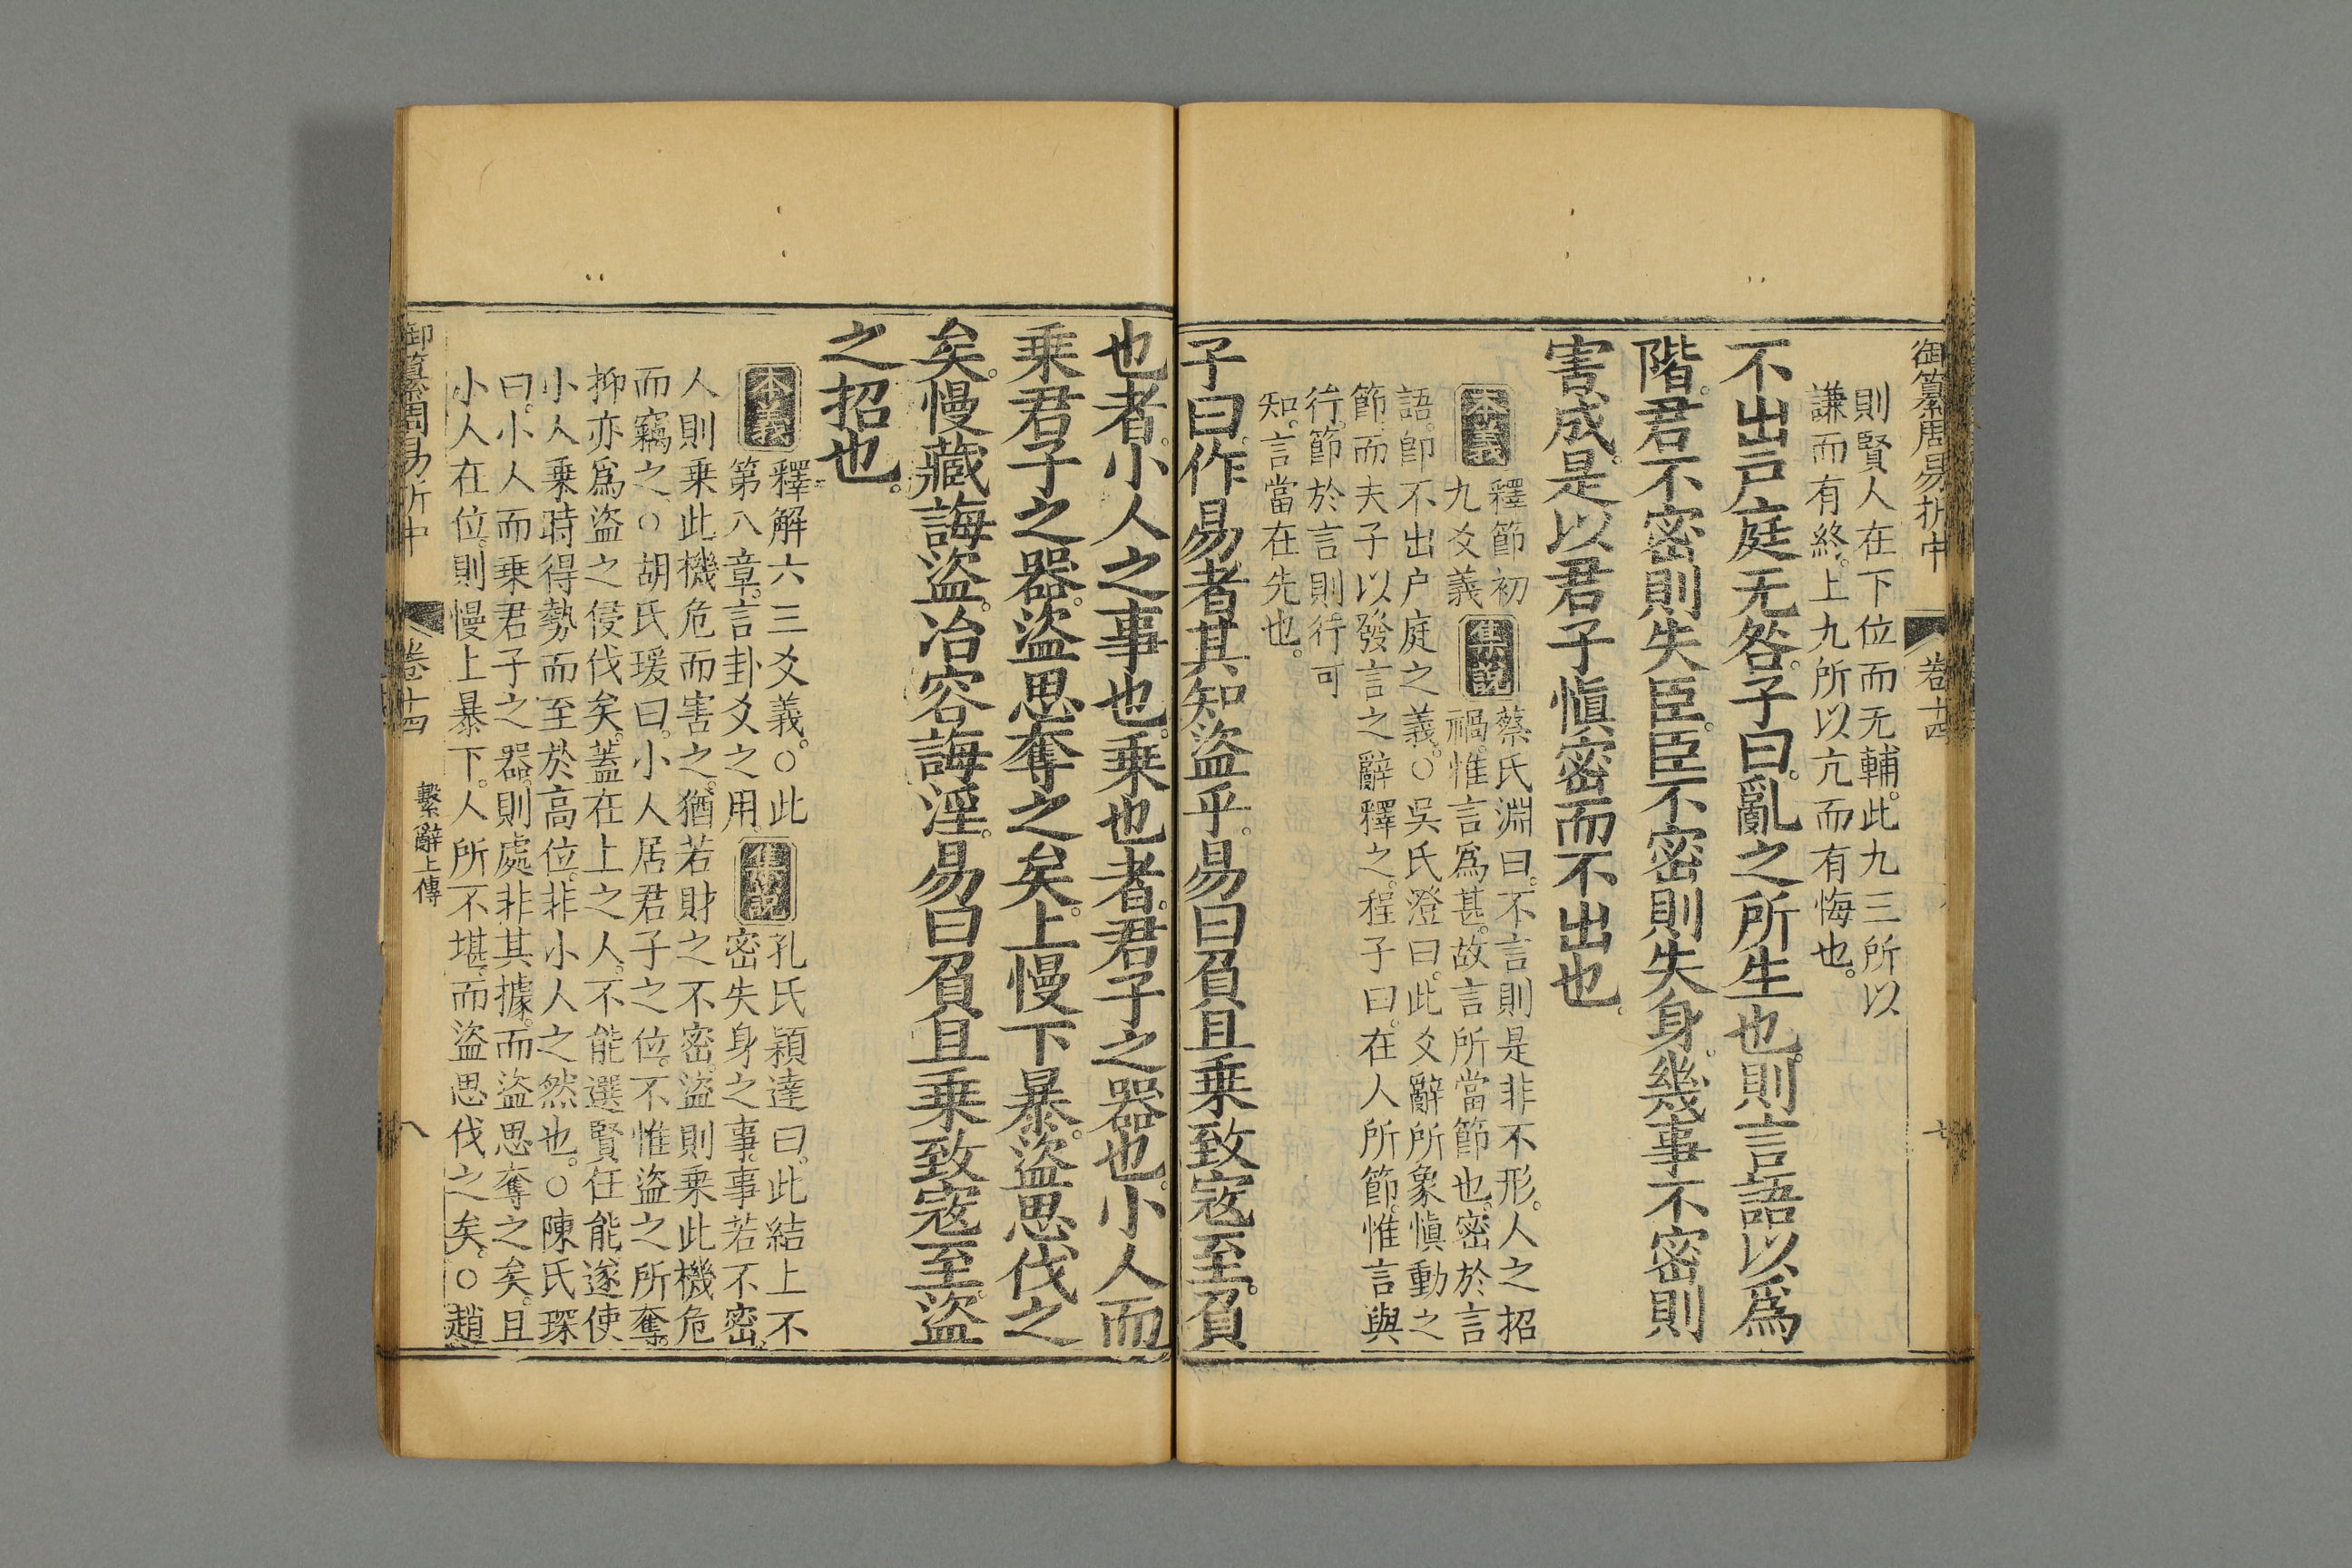 御纂周易折中 卷十四 七
則賢人在下位而无輔。此九三所以
謙而有終。上九所以亢而有悔也。
不出戶庭无咎。子曰。亂之所生也。則言語以為
階。君不密則失臣。臣不密則失身。幾事不密則
害成。是以君子愼密而不出也。
本義 釋節初
九爻義 集說 蔡氏淵曰。不言則是非不形。人之招
禍。惟言為甚。故言所當節也。密於言
語。卽不出户庭之義。○吳氏澄曰。此爻辭所象愼動之
節。而夫子以發言之辭釋之。程子曰。在人所節。惟言與
行。節於言則行可
知。言當在先也。
子曰。作易者其知盜乎。易曰負且乗致寇至。負
也者。小人之事也。乗也者。君子之器也。小人而
乗君子之器。盜思奪之矣。上慢下暴。盜思伐之
矣。慢藏誨盜。冶容誨淫。易曰負且乗致寇至。盜
之招也。
本義 釋解六三爻義。○此
第八章。言卦爻之用。 集說 孔氏穎達曰。此結上不
密失身之事。事若不密。
人則乗此機危而害之。猶若財之不密。盜則乗此機危
而竊之。○胡氏瑗曰。小人居君子之位。不惟盜之所奪。
抑亦為盜之侵伐矣。蓋在上之人。不能選賢任能。遂使
小人乗時得勢而至於高位。非小人之然也。○陳氏琛
曰。小人而乗君子之器。則處非其據。而盜思奪之矣。且
小人在位。則慢上暴下。人所不堪。而盜思伐之矣。○趙
御纂周易折中 卷十四 繫辭上傳 八